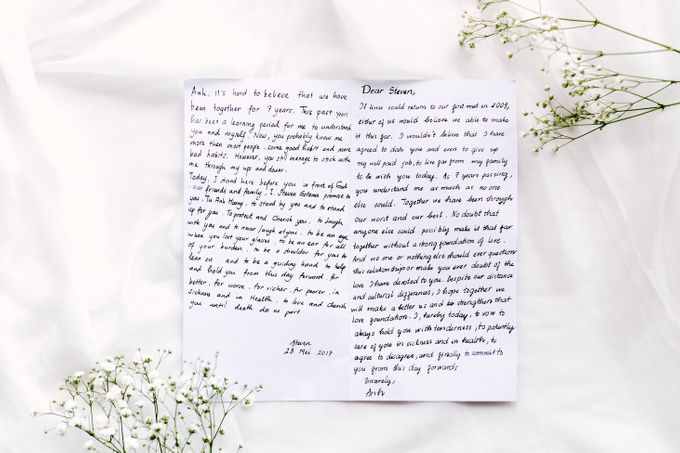 Anh, it's hard to believe that we have
been together for 7 years. This past years
has been a learning period for me to understand
you and myself. Now, you probably know me
more then most people. Some good habit and more
bad habits. However, you still manage to stick with
me through my ups and downs.
Today, I stand here before you in front of God
our friends and family, I, Steven promise to
you, Tu Anh Hoang, to stand by you and to stand
up for you. To protect and Cherish you, to laugh
with you and to never laugh at you. to be an eye
when you lost your glasses. to be an ear for all
of your burden. to be a shoulder for you to
lean on and to be a guiding hand to help
and hold you from this day forward. for
better, for worse, for richer, for poorer, in
sickness and in Health. to love and cherish
you until death do us part
Steven
28 Mei 2017
Dear Steven,
If time could return to our first met in 2009,
either of us would believe we able to make
it this far. I wouldn't believe that I have
agreed to date you and even to give up
my well paid job, to live far from my family
to be with you today. As 7 years passing,
you understand me as much as no one
else could. Together we have been through
our worst and our best. No doubt that
anyone else could possibly make it that far
together without a strong foundation of love.
And no one or nothing else should ever question
this relationship or make you ever doubt of the
love I have devoted to you. Despite our distance
and cultural differences, I hope together we
will make a better us and to strengthen that
love foundation. I, hereby today, to vow to
always hold you with tenderness, to patiently
care of you in sickness and in health, to
agree to disagree, and finally to commit to
you from this day forwards
Sincerely,
Anh